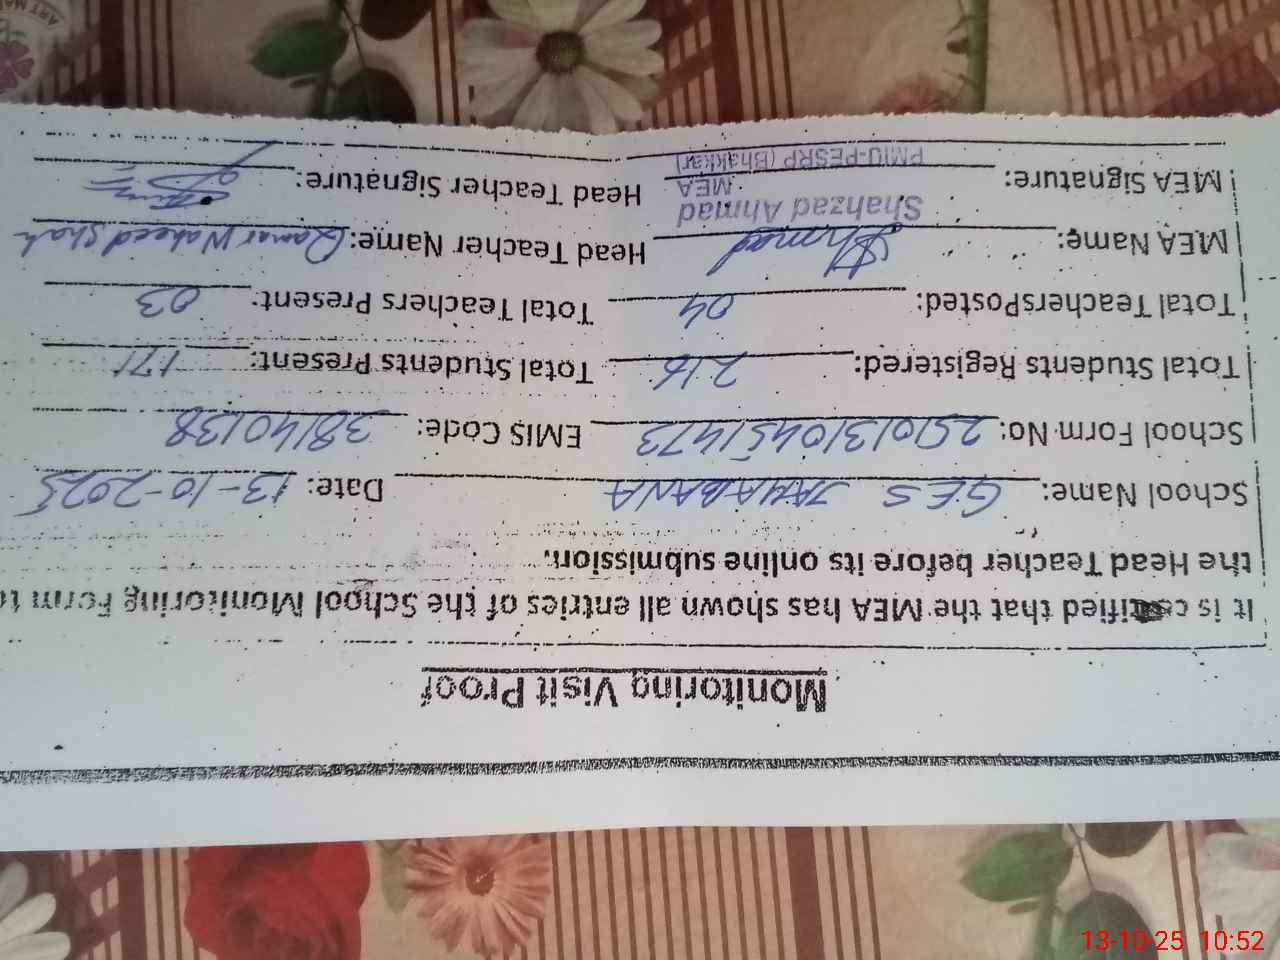 Monitoring Visit Proof
It is certified that the MEA has shown all entries of the School Monitoring Form to
the Head Teacher before its online submission.
School Name: GES Date: 13-10-2025
School Form No: EMIS Code: 38140138
Total Students Registered: 216 Total Students Present: 171
Total TeachersPosted: 04 Total Teachers Present: 03
MEA Name: Ahmad Head Teacher Name: Qamar Waheed Shah
Shahzad Ahmad
MEA Signature: MEA Head Teacher Signature:
PMIU-PESRP (Bhakkar)
13-10-25 10:52